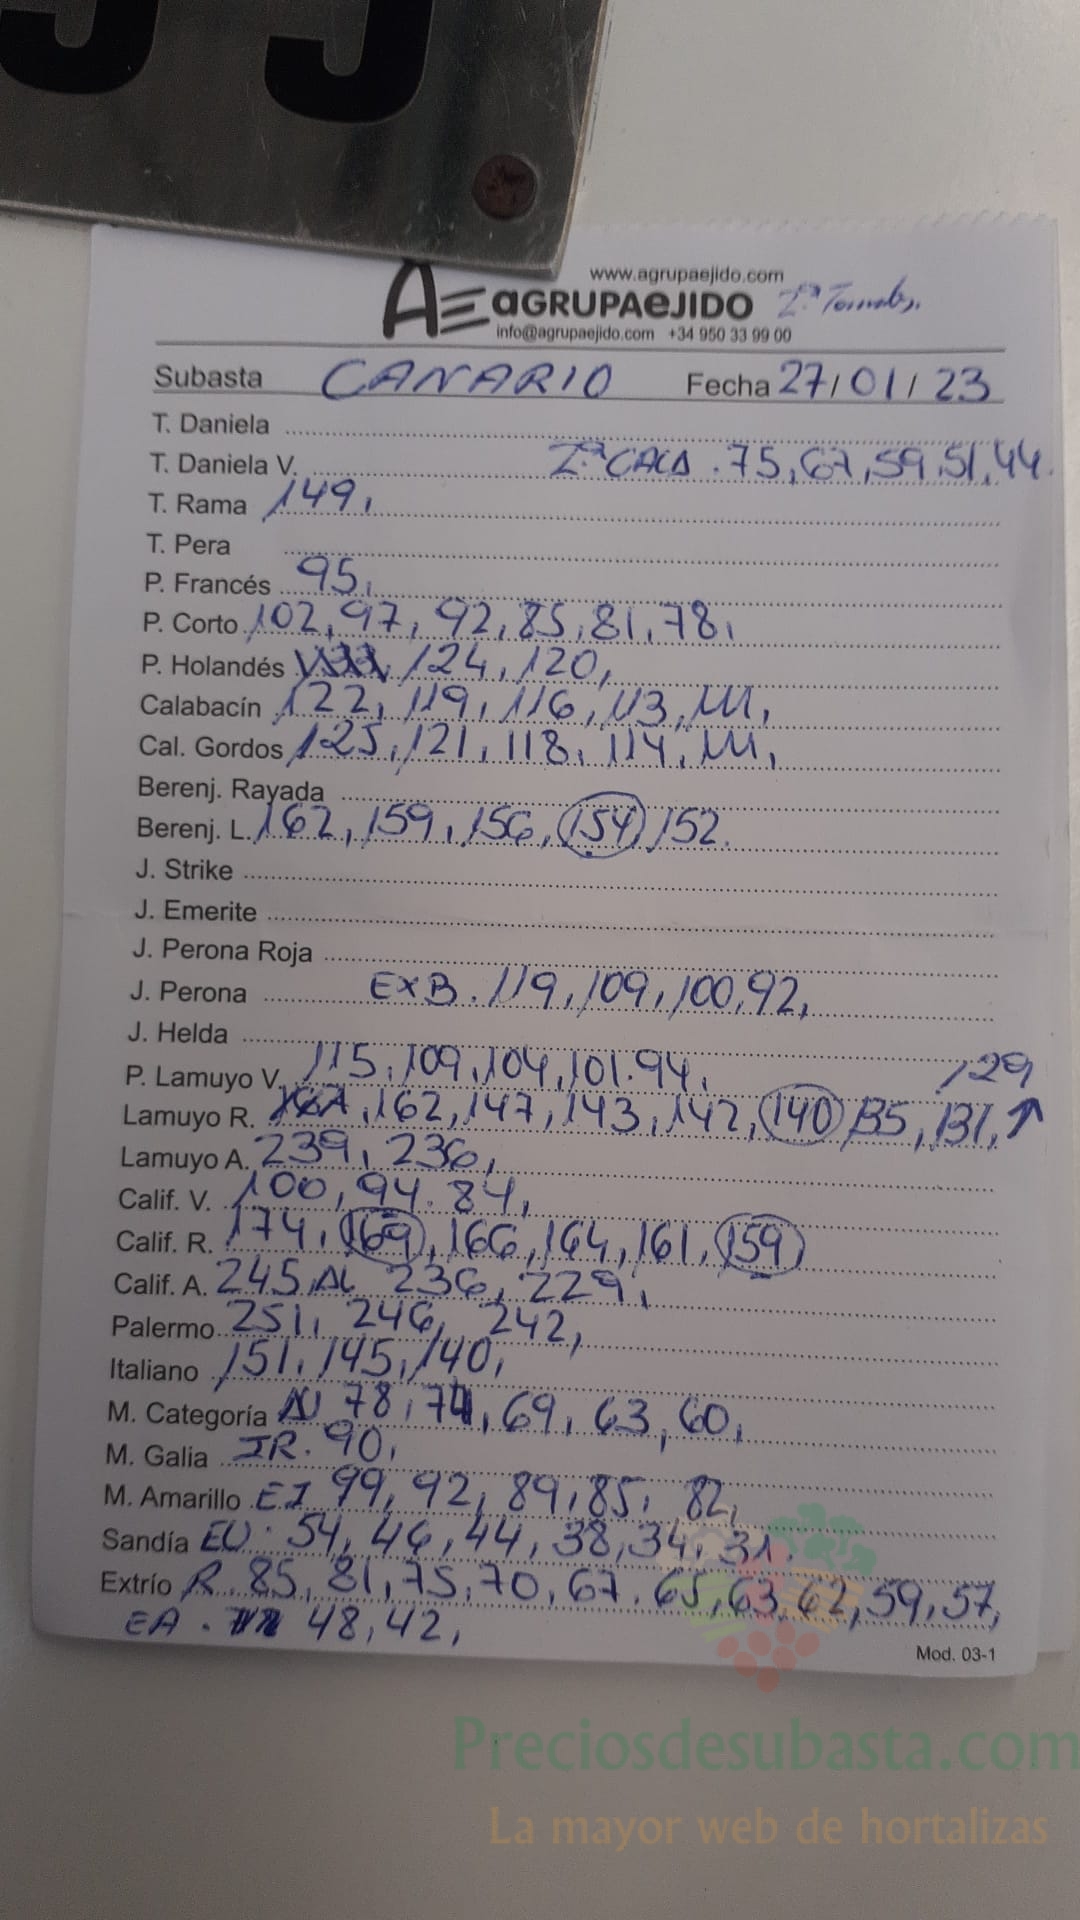 www.agrupaejido.com
AGRUPAEJIDO 2ª
info@agrupaejido.com +34 950 33 99 00
Subasta CANARIO Fecha 27/01/23
T. Daniela
T. Daniela V. 2ª CALA. 75, 67, 59, 51, 44.
T. Rama 149,
T. Pera
P. Francés 95,
P. Corto 102, 97, 92, 85, 81, 78,
P. Holandés 124, 120,
Calabacín 122, 119, 116, 113, 111,
Cal. Gordos 125, 121, 118, 114, 111,
Berenj. Rayada
Berenj. L. 162, 159, 156, 154 152.
J. Strike
J. Emerite
J. Perona Roja
J. Perona EXB. 119, 109, 100, 92,
J. Helda
P. Lamuyo V. 115, 109, 104, 101. 94, 129
Lamuyo R. 162, 147, 143, 142, 140 135, 131, ↑
Lamuyo A. 239, 236,
Calif. V. 100, 94. 84,
Calif. R. 174, 169, 166, 164, 161, 159
Calif. A. 245, AL 236, 229,
Palermo 251, 246, 242,
Italiano 151, 145, 140,
M. Categoría 78, 74, 69, 63, 60,
M. Galia IR. 90,
M. Amarillo EI 99, 92, 89, 85, 82,
Sandía EU. 54, 46, 44, 38, 34, 31.
Extrío R. 85, 81, 75, 70, 67. 65, 63, 62, 59, 57,
EA. 48, 42,
Mod. 03-1
Preciosdesubasta.com
La mayor web de hortalizas